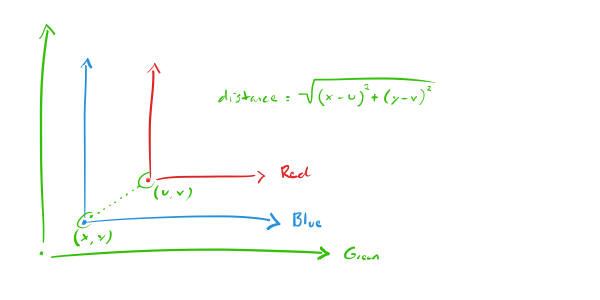 distance = √(x-u)²+(y-v)²
Red
(u,v)
Blue
(x,y)
Green